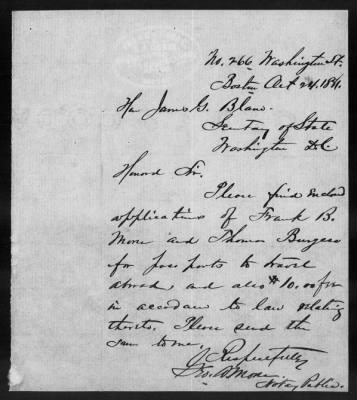 No. 266 Washington St.
Boston Oct 24. 1881.
Hon James G. Blaine.
Secretary of State
Washington D.C.
Honord Sir.
Please find enclosed
applications of Frank B.
More and Thomas Burgess
for pass ports to travel
abroad, and also $10.
in accordance to law relating
thereto. Please send the
same to me,
Respectfully
More
Notary Public.